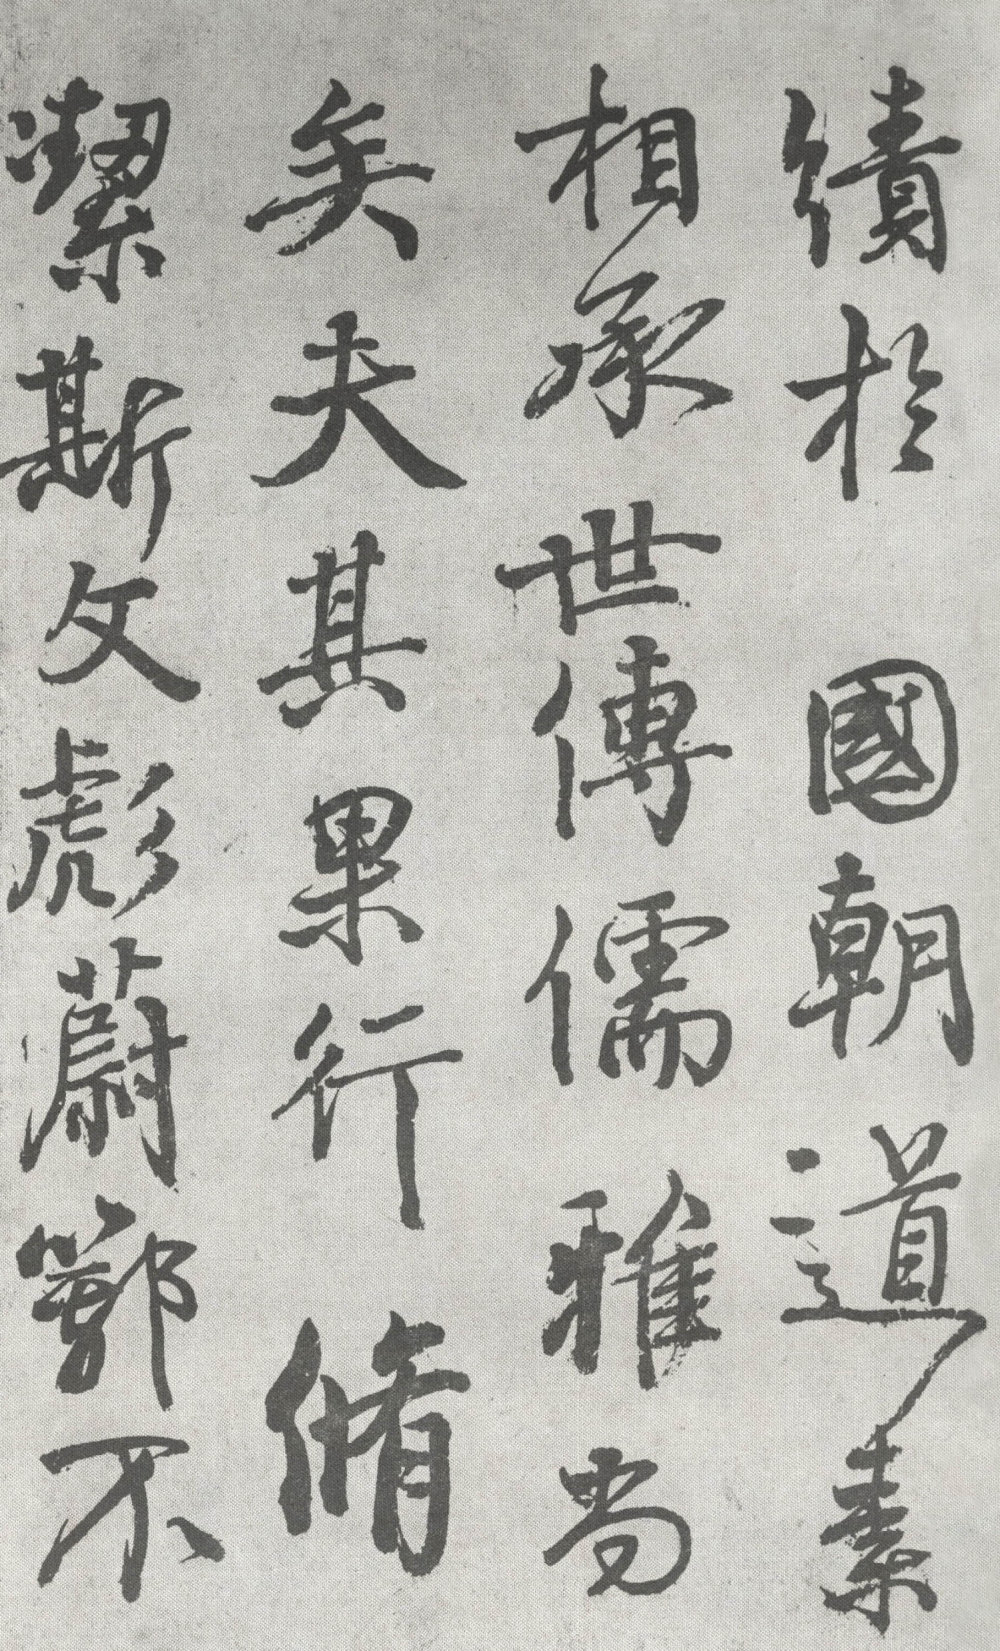 績於　國朝道素
相承世傳儒雅尚
矣夫其果行脩
絜斯文彪蔚鄒不